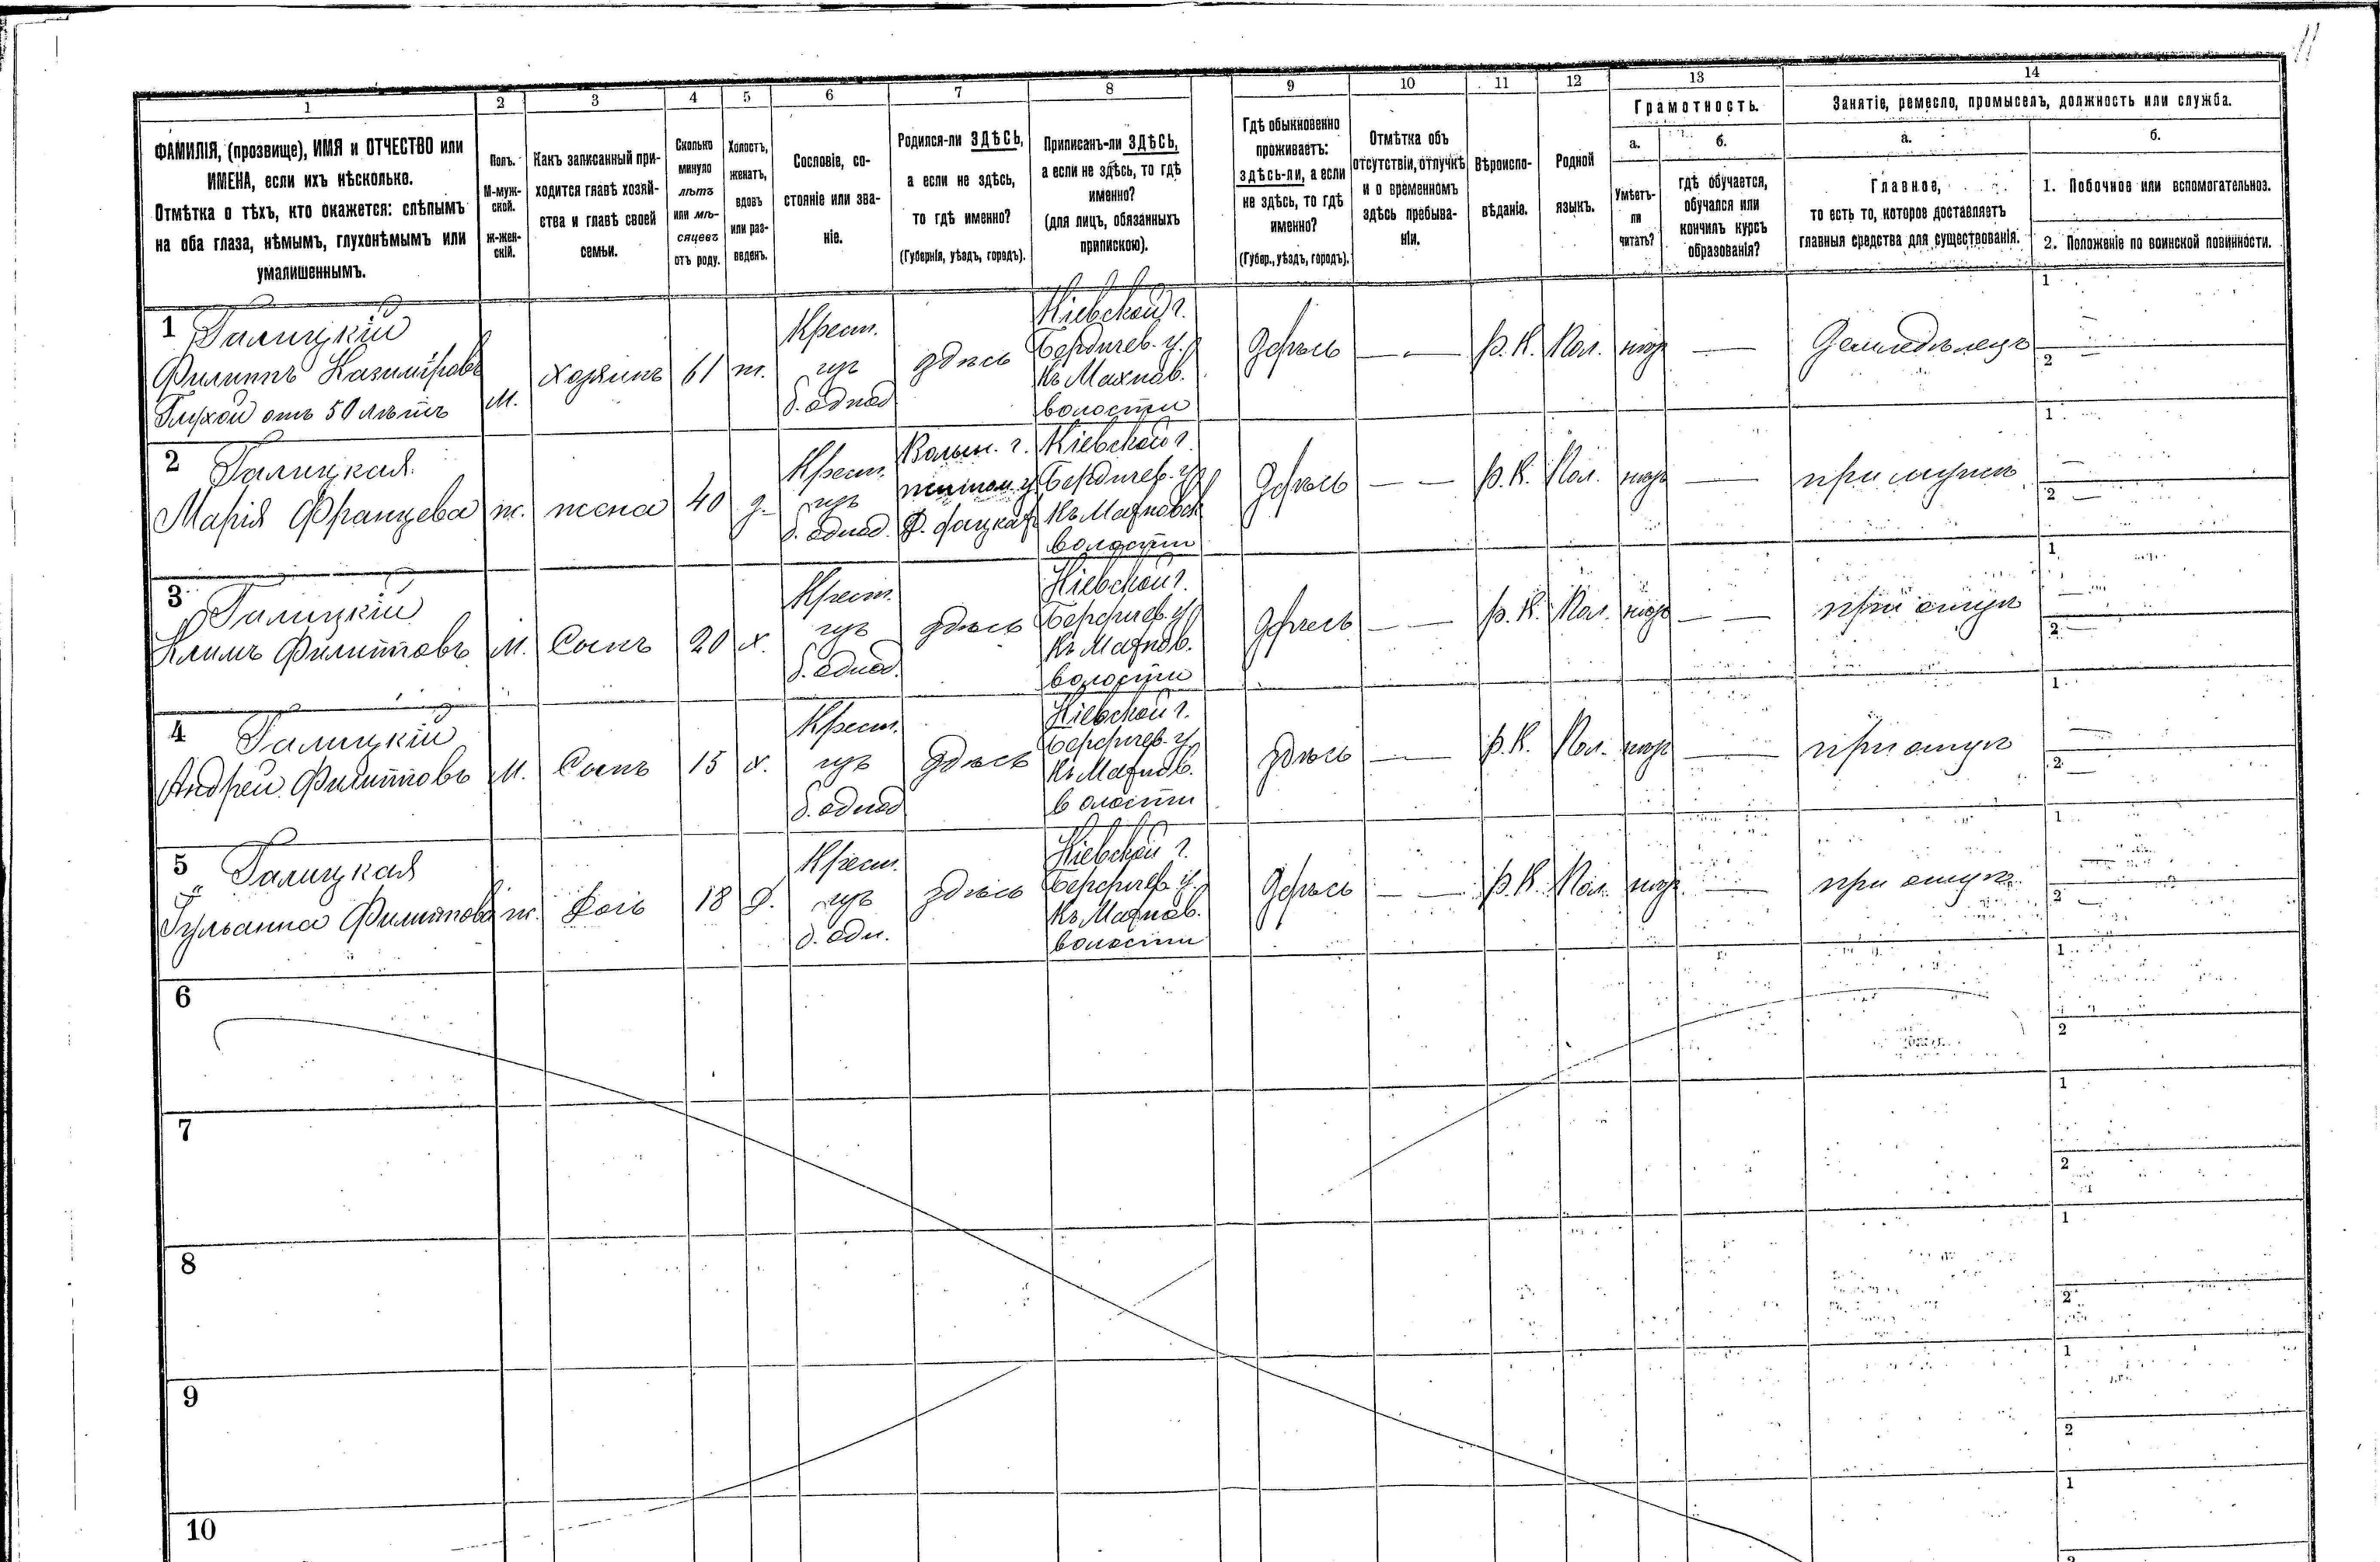 11
1
2
3
4
5
6
7
8
9
10
11
12
13
14
ФАМИЛІЯ, (прозвище), ИМЯ и ОТЧЕСТВО или
ИМЕНА, если ихъ нѣсколько.
Отмѣтка о тѣхъ, кто окажется: слѣпымъ
на оба глаза, нѣмымъ, глухонѣмымъ или
умалишеннымъ.
Полъ.
М-муж-
ской.
ж-жен-
скій.
Какъ записанный при-
ходится главѣ хозяй-
ства и главѣ своей
семьи.
Сколько
минуло
лѣтъ
или мѣ-
сяцевъ
отъ роду.
Холостъ,
женатъ,
вдовъ
или раз-
веденъ.
Сословіе, со-
стояніе или зва-
ніе.
Родился-ли ЗДѢСЬ,
а если не здѣсь,
то гдѣ именно?
(Губернія, уѣздъ, городъ).
Приписанъ-ли ЗДѢСЬ,
а если не здѣсь, то гдѣ
именно?
(для лицъ, обязанныхъ
припискою).
Гдѣ обыкновенно
проживаетъ:
здѣсь-ли, а если
не здѣсь, то гдѣ
именно?
(Губер., уѣздъ, городъ).
Отмѣтка объ
отсутствіи, отлучкѣ
и о временномъ
здѣсь пребыва-
ніи.
Вѣроиспо-
вѣданіе.
Родной
языкъ.
Грамотность.
а.
Умѣетъ-
ли
читать?
б.
гдѣ обучается,
обучался или
кончилъ курсъ
образованія?
Занятіе, ремесло, промыселъ, должность или служба.
а.
Главное,
то есть то, которое доставляетъ
главныя средства для существованія.
б.
1. Побочное или вспомогательное.
2. Положеніе по воинской повинности.
1 Галицкій
Филиппъ Казиміровъ
Глухой отъ 50 лѣтъ
М.
Хозяинъ
61
ж.
Крест.
изъ
б. однод
здѣсь
Кіевской г.
Бердичев. у.
Къ Махнов.
волости
Здѣсь
— —
Р. К.
Пол.
—
Земледѣлецъ
1 —
2 —
2 Галицкая
Марія Францева
ж.
жена
40
з.
Крест.
изъ
б. однод.
Волын. г.
Житом. у.
Кіевской г.
Бердичев. у.
Къ Махновск
волости
Здѣсь
— —
Р. К.
Пол.
—
при мужѣ
1 —
2 —
3 Галицкій
Климъ Филипповъ
М.
Сынъ
20
х.
Крест.
изъ
б. однод.
здѣсь
Кіевской г.
Бердичев. у.
Къ Махнов.
волости
Здѣсь
— —
Р. К.
Пол.
— —
при отцѣ
1 —
2 —
4 Галицкій
Андрей Филипповъ
М.
Сынъ
15
х.
Крест.
изъ
б. однод
Здѣсь
Кіевской г.
Бердичев. у.
Къ Махнов.
волости
здѣсь
— —
Р. К.
Пол.
—
при отцѣ
1 —
2 —
5 Галицкая
Гульянна Филиппова
ж.
Дочь
18
д.
Крест.
изъ
б. одн.
здѣсь
Кіевской г.
Бердичев. у.
Къ Махнов.
волости
Здѣсь
— —
Р. К.
Пол.
—
при отцѣ
1 —
2 —
6
1
2
7
1
2
8
1
2
9
1
2
10
1
2